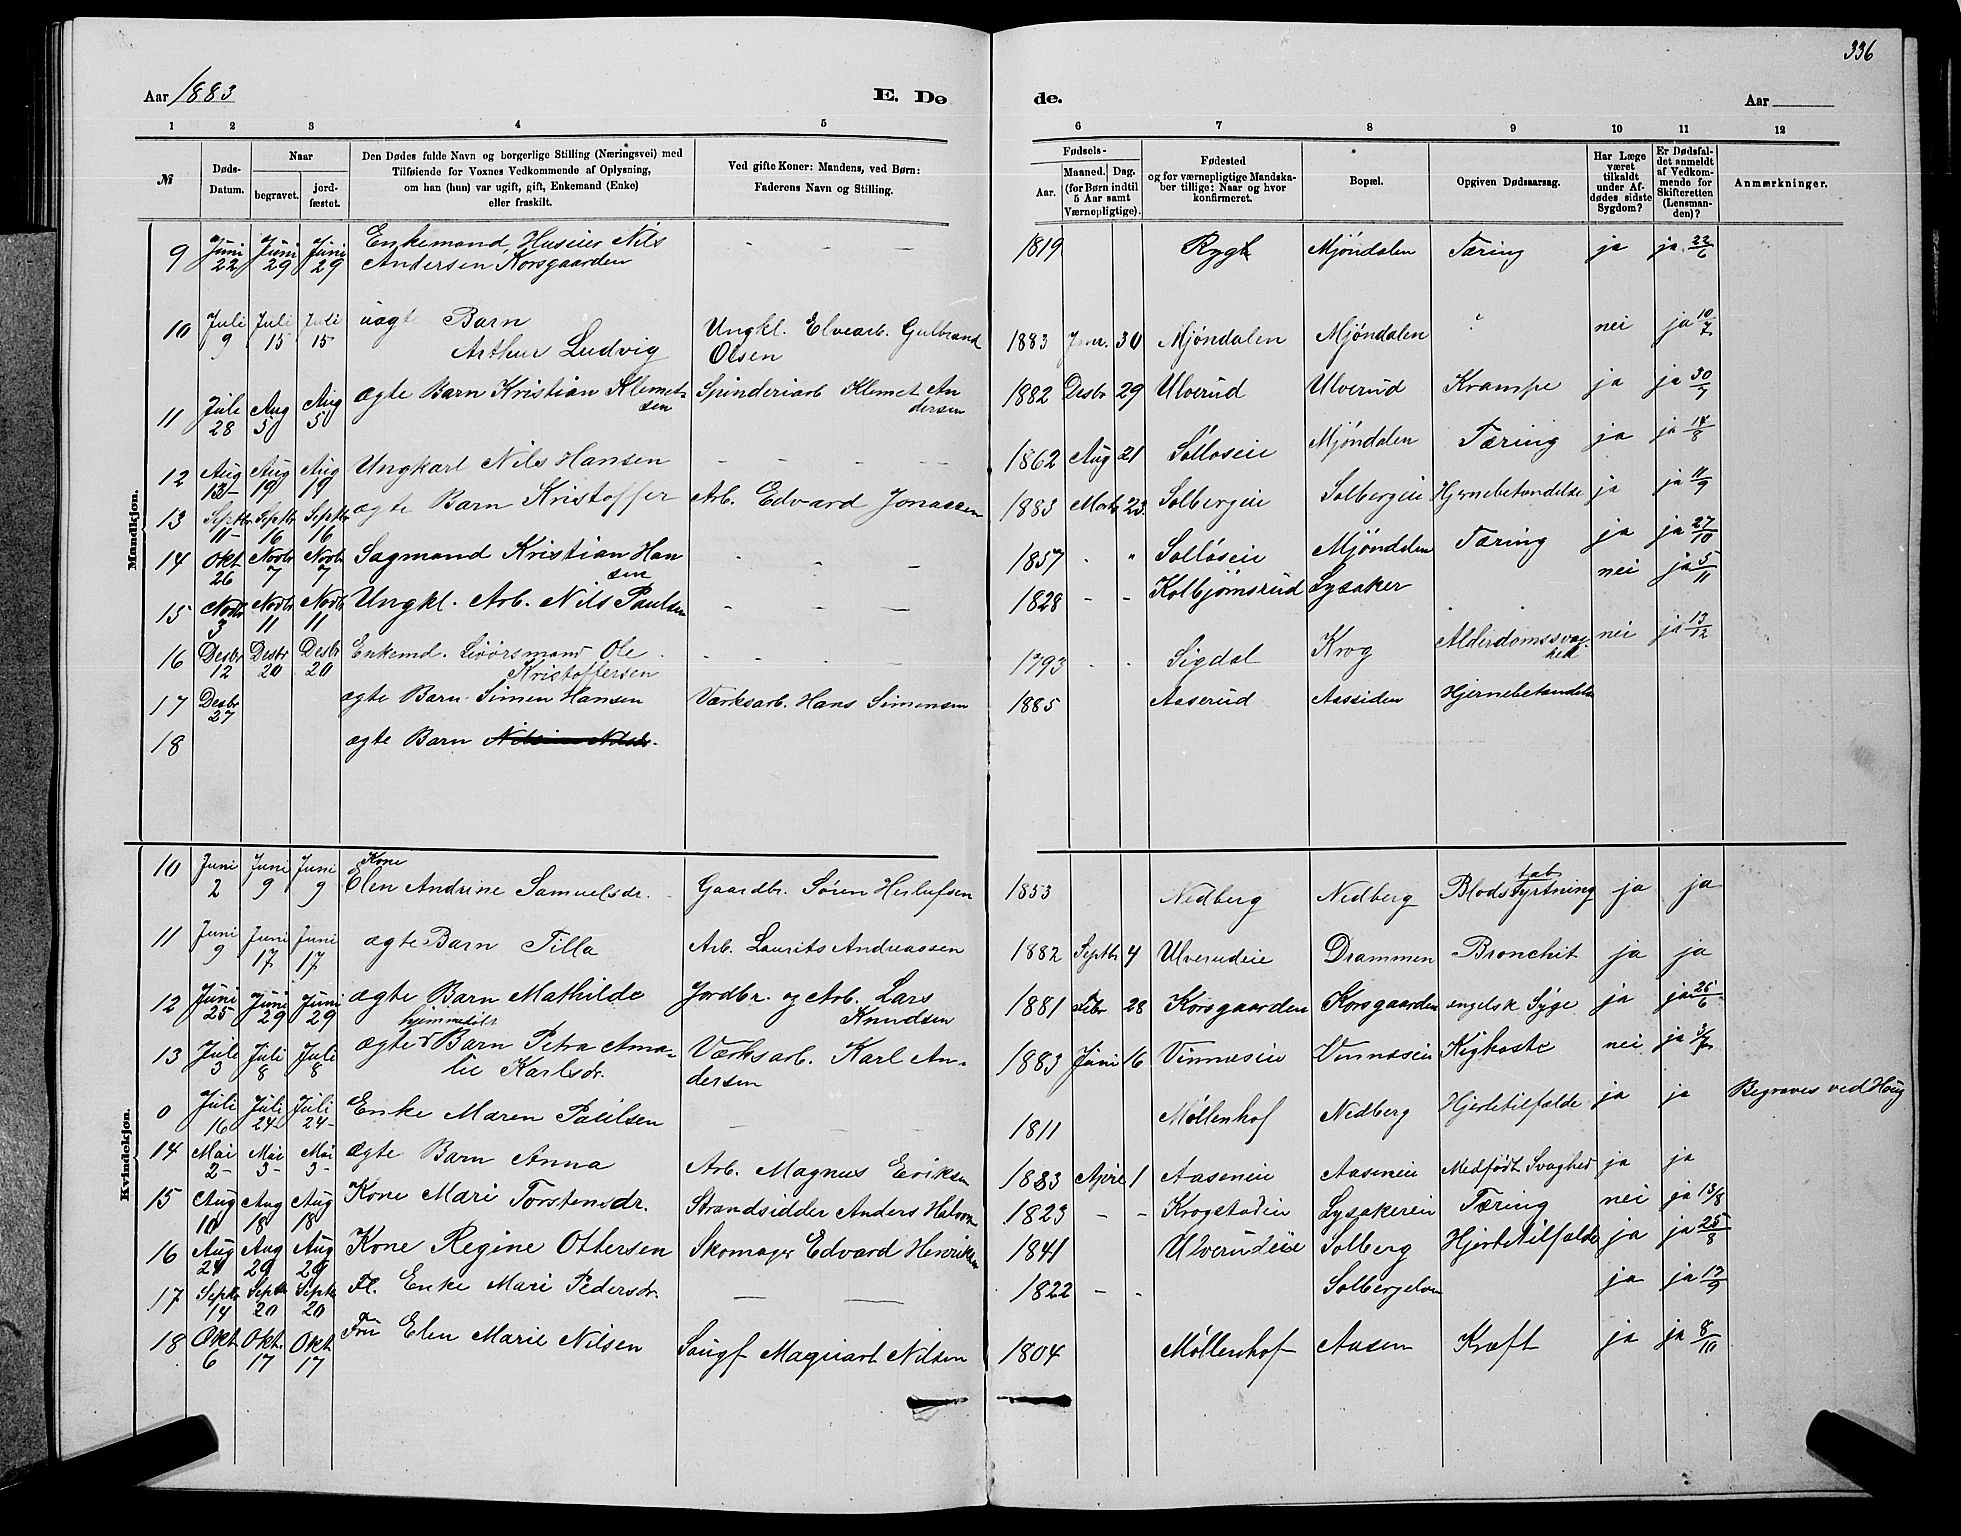 336
Aar 1883 E. Dø de. Aar
1 2 3 4 5 6 7 8 9 10 11 12
№ Døds-Datum. Naar begravet. jord-fæstet. Den Dødes fulde Navn og borgerlige Stilling (Næringsvei) med Tilføiende for Voxnes Vedkommende af Oplysning, om han (hun) var ugift, gift, Enkemand (Enke) eller fraskilt. Ved gifte Koner: Mandens, ved Børn: Faderens Navn og Stilling. Fødsels- Aar. Maaned. Dag. (for Børn indtil 5 Aar samt Værnepligtige). Fødested og for værnepligtige Mandska-ber tillige: Naar og hvor konfirmeret. Bopæl. Opgiven Dødsaarsag. Har Læge været tilkaldt under Af-dødes sidste Sygdom? Er Dødsfal-det anmeldt af Vedkom-mende for Skifteretten (Lensman-den)? Anmærkninger.
Mandkjøn.
9 Juni 22 Juni 29 Juni 29 Enkemand, Huseier Nils Andersen Korsgaarden - - - 1819 Rygh Mjöndalen Tæring ja ja 22/6
10 Juli 9 Juli 15 Juli 15 uægte Barn Arthur Ludvig Ungkl. Elvearb. Gulbrand Olsen 1883 Janr. 30 Mjöndalen Mjöndalen ? nei ja 10/7
11 Juli 28 Aug 5 Aug 5 ægte Barn Kristian Klemet-sen Spinderiarb Klemet An dersen 1882 Desbr 29 Ulverud Ulverud Krampe ja ja 30/7
12 Aug 13- Aug 19 Aug 19 Ungkarl Nils Hansen - - - - 1862 Aug 21 Sölloseie Mjöndalen Tæring ja ja 14/8
13 Septbr 11- Septbr 16 Septbr 16 ægte Barn Kristoffer Arb. Edvard Jonassen 1883 Marts 23. Solbergeie Solbergeie Hjernebetændelse ja ja 11/9
14 Okt 26 Novbr 7 Novbr 7 Sagmand Kristian Han sen - - - 1857 " " Sollöseie Mjöndalen Tæring ja ja 27/10
15 Novbr 3 Novbr 11 Novbr 11 Ungkl. Arb. Nils Paulsen - - - 1828 - - Kolbjørnsrud Lysaker nei ja 5/11
16 Desbr 12 Desbr 20 Desbr 20 Enkemd. Ole Kristoffersen - - - - 1793 - - Sigdal Krog Alderdomssvag-hed nei ja 13/12
17 Desbr 27 ægte Barn Simen Hansen Værksarb. Hans Simensen 1885 Aaserud Aassiden Hjernebetændelse
18 ægte Barn Nilsine Nilsdr.
Kvindekjøn.
10 Juni 2 Juni 9 Juni 9 Kone Elen Andrine Samuelsdr. Gaardbr. Sören Herlufsen 1853 Nedberg Nedberg Blodstyrtning tab ja ja
11 Juni 9 Juni 17 Juni 17 ægte Barn Tilla Arb. Laurits Andreassen 1882 Septbr 4 Ulverudeie Drammen Bronchit ja ja
12 Juni 25 Juni 29 Juni 29 ægte Barn Mathilde Jordbr. og Arb. Lars Knudsen 1881 Febr 28 Korsgaarden Korsgaarden engelsk Syge ja ja 25/6
13 Juli 3 Juli 8 Juli 8 ægte hjemmedöbt Barn Petra Ama-lie Karlsdr. Værksarb. Karl An-dersen 1883 Juni 16 Vinnæseie Vinnæseie Kighoste nei ja 3/7
0 Juli 16 Juli 24- Juli 24- Enke Maren Paulsen - - - 1811 Møllenhof Nedberg Hjertetilfælde ja ja Begraves ved Houg
14 Mai 2- Mai 3- Mai 3- ægte Barn Anna Arb. Magnus Eriksen 1883 April 1 Aaseneie Aaseneie Medfödt Svaghed ja ja
15 Aug 10 Aug 18 Aug 18 Kone Mari Torstensdr. Strandsidder Anders Halvorsen 1823 - - Krogstadeie Lysakereie Tæring nei ja 13/8
16 Aug 24 Aug 29 Aug 29 Kone Regine Ottersen Skomager Edvard Henriksen 1841 Ulverudeie Solberg Hjertetilfælde ja ja 25/8
17 Septbr 14 Septbr 20 Septbr 20 Fl. Enke Mari Pedersdr. - - 1822 - - Solbergelven ja ja 17/9
18 Okt 6 Okt. 17 Okt 17 Fru Elen Marie Nilsen Nilsen 1804 Møllenhof Aasen Kræft ja ja 8/10